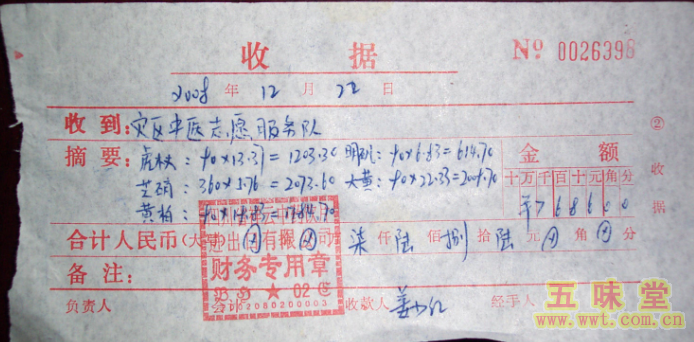 收 据
№ 0026398
2008 年 12 月 22 日
收到：灾区中医志愿服务队
摘要：虎杖：90×13.37=1203.30 明矾：90×6.83=614.70
芒硝：360×5.76=2073.60 大黄：90×22.33=2009.70
黄柏：90×19.83=1784.70
金 额
十万千百十元角分
¥768600
② 收据
合计人民币(大 柒 仟 陆 佰 捌 拾 陆 元 角 分
进出口有限公司
财务专用章
★ 02
备注：
负责人 会计 收款人 经手人
五味堂
www.wwt.com.cn